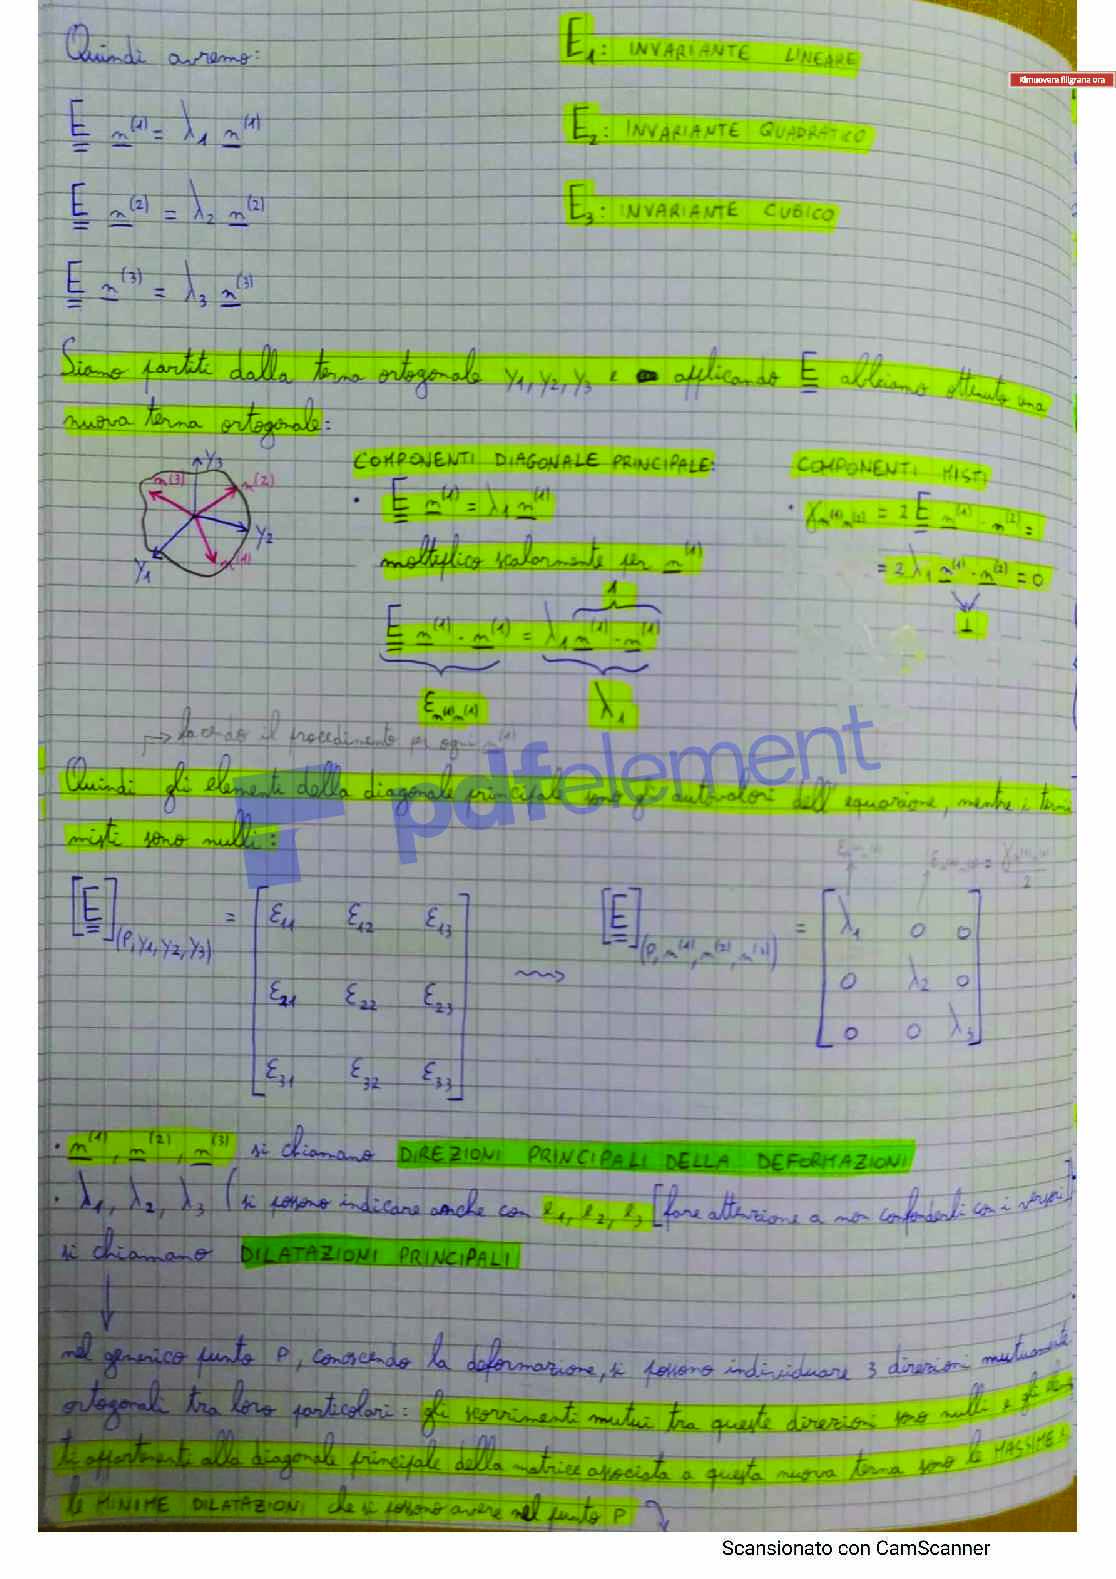 Quindi avremo:
E₁: INVARIANTE LINEARE
Rimuovera filigrana ora
E n⁽¹⁾ = λ₁ n⁽¹⁾
E₂: INVARIANTE QUADRATICO
E n⁽²⁾ = λ₂ n⁽²⁾
E₃: INVARIANTE CUBICO
E n⁽³⁾ = λ₃ n⁽³⁾
Siamo partiti dalla terna ortogonale y₁, y₂, y₃ e applicando E abbiamo ottenuto una
nuova terna ortogonale:
y₃
n⁽³⁾
n⁽²⁾
y₂
y₁
n⁽¹⁾
COMPONENTI DIAGONALE PRINCIPALE:
· E n⁽¹⁾ = λ₁ n⁽¹⁾
moltiplico scalarmente per n⁽¹⁾
1
E n⁽¹⁾ · n⁽¹⁾ = λ₁ n⁽¹⁾ · n⁽¹⁾
ε n⁽¹⁾n⁽¹⁾
λ₁
COMPONENTI MISTI
· γ n⁽¹⁾n⁽²⁾ = 2 E n⁽¹⁾ · n⁽²⁾ =
= 2 λ₁ n⁽¹⁾ · n⁽²⁾ = 0
⊥
→ facendo il procedimento per ogni n⁽¹⁾
pdfelement
Quindi gli elementi della diagonale principale sono gli autovalori dell'equazione, mentre i termi
misti sono nulli:
[E](P, y₁, y₂, y₃) = [ε₁₁ ε₁₂ ε₁₃
ε₂₁ ε₂₂ ε₂₃
ε₃₁ ε₃₂ ε₃₃]
[E](P, n⁽¹⁾, n⁽²⁾, n⁽³⁾) = [λ₁ 0 0
0 λ₂ 0
0 0 λ₃]
· n⁽¹⁾, n⁽²⁾, n⁽³⁾ si chiamano DIREZIONI PRINCIPALI DELLA DEFORMAZIONI
· λ₁, λ₂, λ₃ (si possono indicare anche con e₁, e₂, e₃ [fare attenzione a non confonderli con i versori])
si chiamano DILATAZIONI PRINCIPALI
nel generico punto P, conoscendo la deformazione, si possono individuare 3 direzioni mutuamente
ortogonali tra loro particolari: gli scorrimenti mutui tra queste direzioni sono nulli e gli
ti appartenenti alla diagonale principale della matrice associata a questa nuova terna sono le MASSIME e
le MINIME DILATAZIONI che si possono avere nel punto P
Scansionato con CamScanner